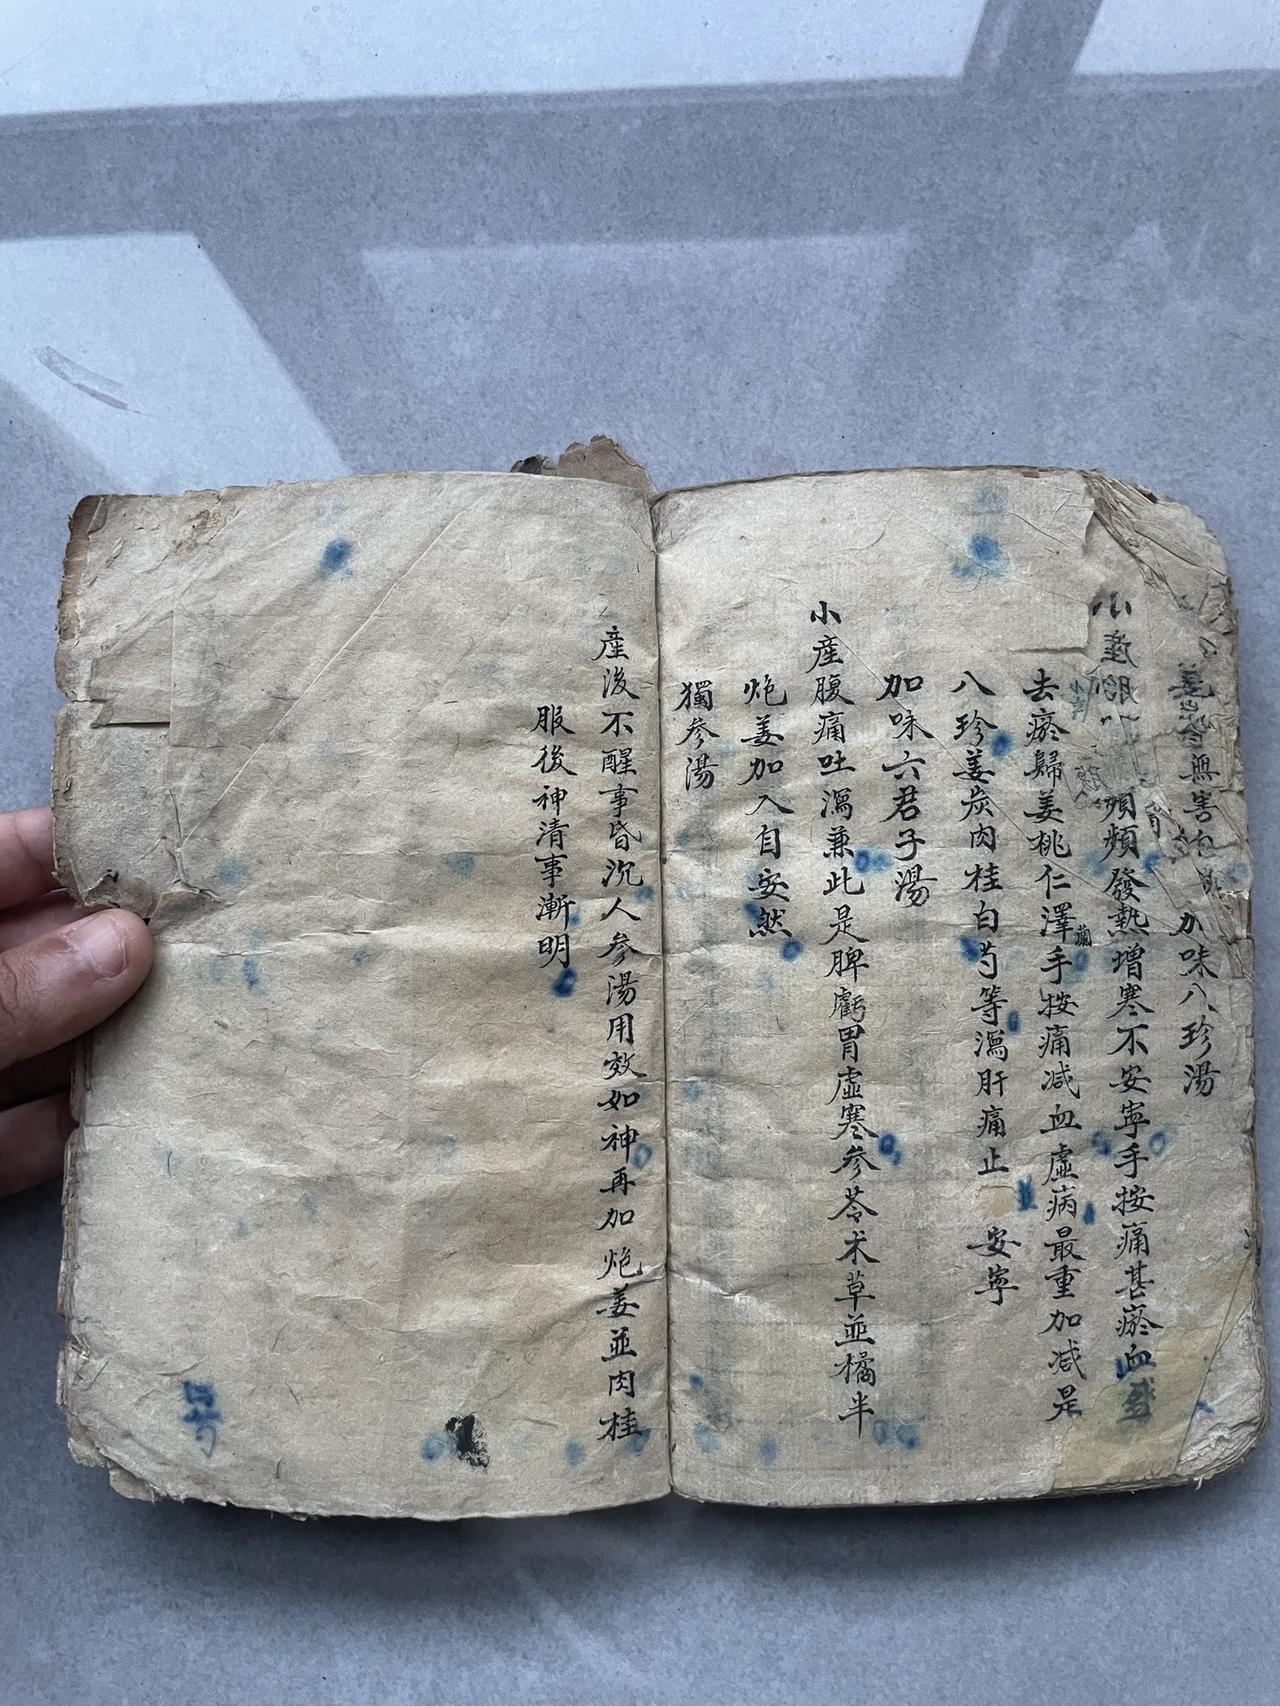 姜
無害
加味八珍湯
小產
頻頻發熱增寒不安寧手按痛甚瘀血盛
去瘀歸姜桃仁澤蘭手按痛减血虛病最重加减是
八珍姜炭肉桂白芍等瀉肝痛止
安寧
加味六君子湯
小產腹痛吐瀉兼此是脾虧胃虛寒參苓术草並橘半
炮姜加入自安然
獨參湯
產後不醒事昏沉人參湯用效如神再加炮姜並肉桂
服後神清事漸明